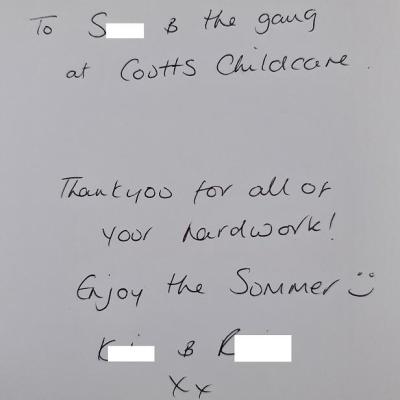 To S & the gang
at Coutts Childcare.
Thankyou for all of
your hardwork!
Enjoy the Summer
K & R
xx